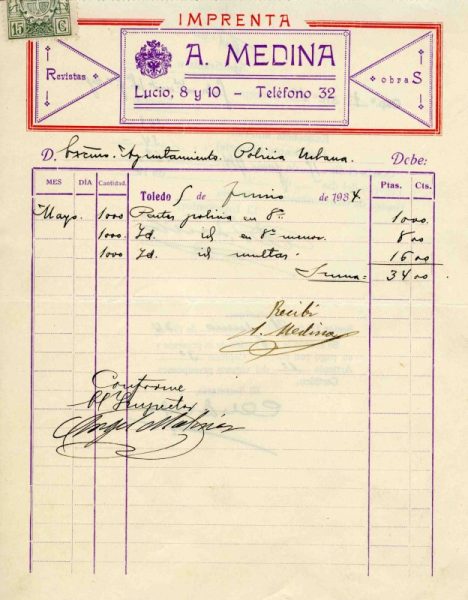 15 C
IMPRENTA
A. MEDINA
Revistas
obraS
Lucio, 8 y 10 – Teléfono 32
D. Excmo. Ayuntamiento. Policia Urbana. Debe:
MES DÍA Cantidad. Toledo 5 de Junio de 1934. Ptas. Cts.
Mayo. 1000 Partes policia en 8º 10 00
1000 Id. id en 8º menor. 8 00
1000 Id. id multas. 16 00
Suma = 34 00
Recibí
A. Medina
Conforme
El Inspector
Angel